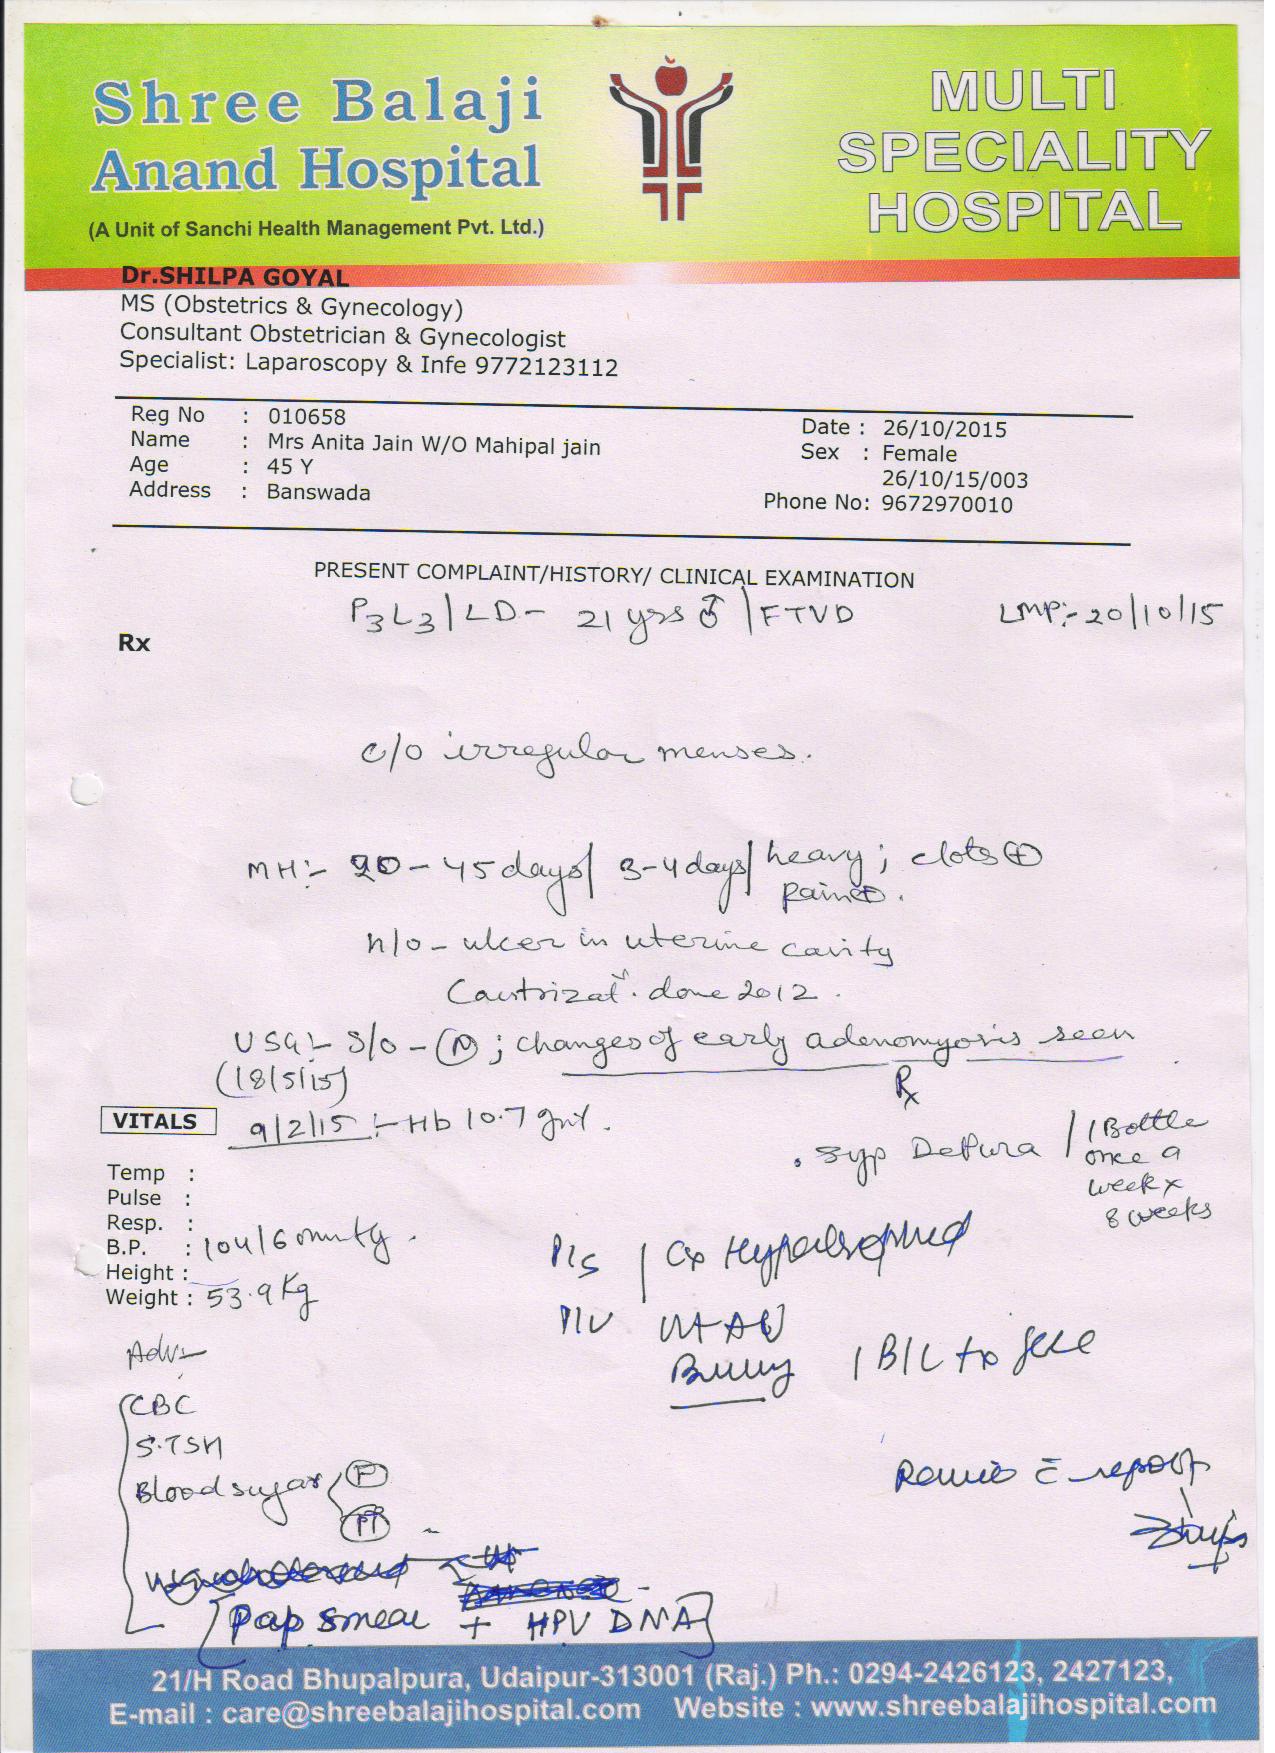 Shree Balaji
Anand Hospital
(A Unit of Sanchi Health Management Pvt. Ltd.)
MULTI
SPECIALITY
HOSPITAL
Dr.SHILPA GOYAL
MS (Obstetrics & Gynecology)
Consultant Obstetrician & Gynecologist
Specialist: Laparoscopy & Infe 9772123112
Reg No : 010658
Name : Mrs Anita Jain W/O Mahipal jain
Age : 45 Y
Address : Banswada
Date : 26/10/2015
Sex : Female
26/10/15/003
Phone No: 9672970010
PRESENT COMPLAINT/HISTORY/ CLINICAL EXAMINATION
P3L3 | LD - 21 yrs ♂ | FTVD LMP:- 20/10/15
Rx
c/o irregular menses.
MH:- 20-45 days/ 3-4 days/ heavy; clots ⊕
pain ⊕.
h/o - ulcer in uterine cavity
Cautrizat. done 2012.
USG:- S/O - (N); changes of early adenomyosis seen
(18/5/15)
Rx
9/2/15 :- Hb 10.7 gm%.
. Syp DePura / 1 Bottle
once a
week x
8 weeks
VITALS
Temp :
Pulse :
Resp. :
B.P. : 104/60 mmHg.
Height :
Weight : 53.9 Kg
P/S | Cx Hypertrophied
P/V Ut AV
Bulky | B/L fx free
Adv:-
CBC
S.TSH
Blood sugar F
PP
[Pap smear + HPV DNA]
Review c̄ reports
21/H Road Bhupalpura, Udaipur-313001 (Raj.) Ph.: 0294-2426123, 2427123,
E-mail : care@shreebalajihospital.com Website : www.shreebalajihospital.com